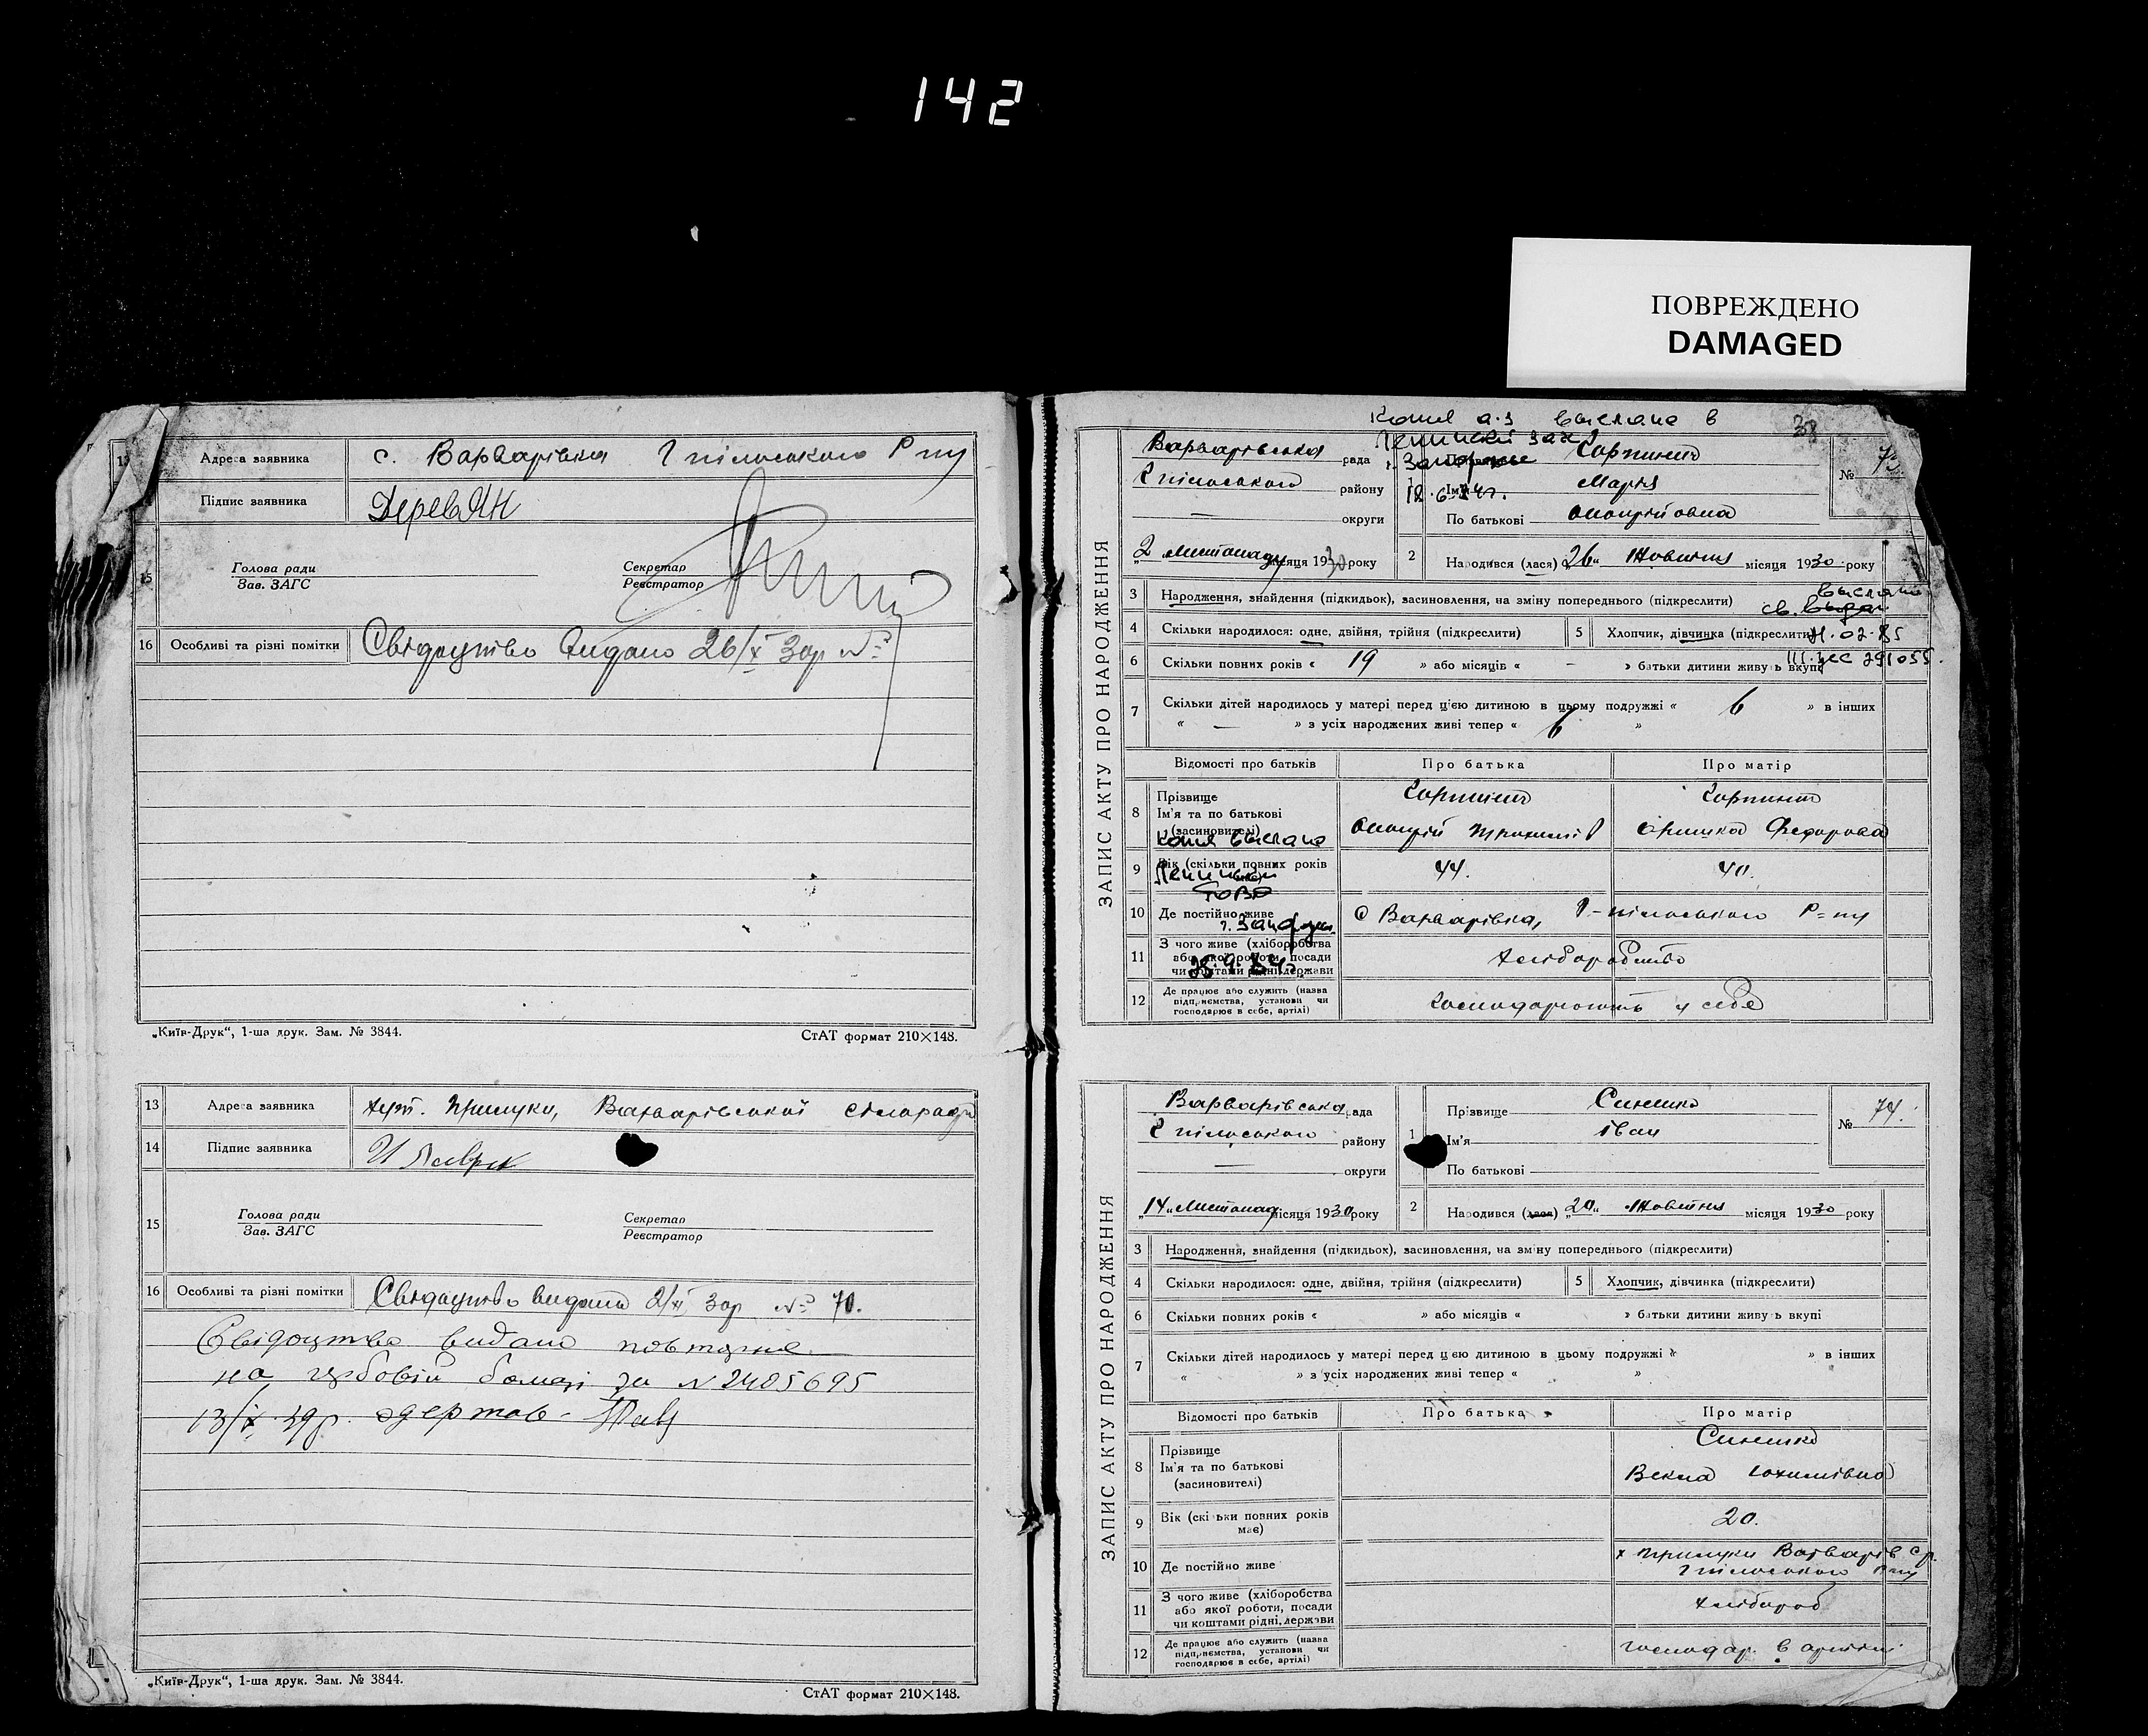 142
ПОВРЕЖДЕНО
DAMAGED
Адреса заявника с. Варварівка
Підпис заявника ДеревЯн
15 Голова ради Секретар
Зав. ЗАГС Реєстратор
16 Особливі та різні помітки Свідоцтво видано 26/X 30р №
„Київ-Друк“, 1-ша друк. Зам. № 3844. СтАТ формат 210×148.
13 Адреса заявника хут. Прилуки, Варварівської сільради
14 Підпис заявника
15 Голова ради Секретар
Зав. ЗАГС Реєстратор
16 Особливі та різні помітки Свідоцтво видано 2/XI 30р № 70.
Свідоцтво видано повторне
на гербовій бомазі за № 2405695
13/X 39р. одержав
„Київ-Друк“, 1-ша друк. Зам. № 3844. СтАТ формат 210×148.
Копия а.з выслана в
38
ЗАПИС АКТУ ПРО НАРОДЖЕННЯ
Варварівська рада
району
— округи
2 листопада місяця 1930 року
1
Ім'я Марія
По батькові
№ 73
2 Народився (лася) „26“ Жовтня місяця 1930 року
3 Народження, знайдення (підкидьок), засиновлення, на зміну попереднього (підкреслити)
выслано
св.
4 Скільки народилося: одне, двійня, трійня (підкреслити) 5 Хлопчик, дівчинка (підкреслити)
02.85
6 Скільки повних років « 19 » або місяців « - » батьки дитини живуть вкупі
291055.
7 Скільки дітей народилось у матері перед цією дитиною в цьому подружжі « 6 » в інших
« — » з усіх народжених живі тепер « 6 »
Відомості про батьків Про батька Про матір
8 Прізвище
Ім'я та по батькові
(засиновителі)
Федорова
Копия выслана
9 Вік (скільки повних років має) 44. 40.
10 Де постійно живе с Варварівка,
11 З чого живе (хліборобства або якої роботи, посади чи коштами рідні, держави хліборобство
12 Де працює або служить (назва підприємства, установи чи господарює в себе, артілі) господарюють у себе
ЗАПИС АКТУ ПРО НАРОДЖЕННЯ
Варварівська рада
району
— округи
„14“ листопад місяця 1930 року
1 Прізвище Синешко
Ім'я Іван
По батькові
№ 74.
2 Народився (лася) „20“ Жовтня місяця 1930 року
3 Народження, знайдення (підкидьок), засиновлення, на зміну попереднього (підкреслити)
4 Скільки народилося: одне, двійня, трійня (підкреслити) 5 Хлопчик, дівчинка (підкреслити)
6 Скільки повних років « » або місяців « » батьки дитини живуть вкупі
7 Скільки дітей народилось у матері перед цією дитиною в цьому подружжі « » в інших
« » з усіх народжених живі тепер « »
Відомості про батьків Про батька Про матір
8 Прізвище Синешко
Ім'я та по батькові Векла
(засиновителі)
9 Вік (скільки повних років має) 20.
10 Де постійно живе х Прилуки Варварів с/р.
11 З чого живе (хліборобства або якої роботи, посади чи коштами рідні, держави хлібороб
12 Де працює або служить (назва підприємства, установи чи господарює в себе, артілі) господар. в артілі